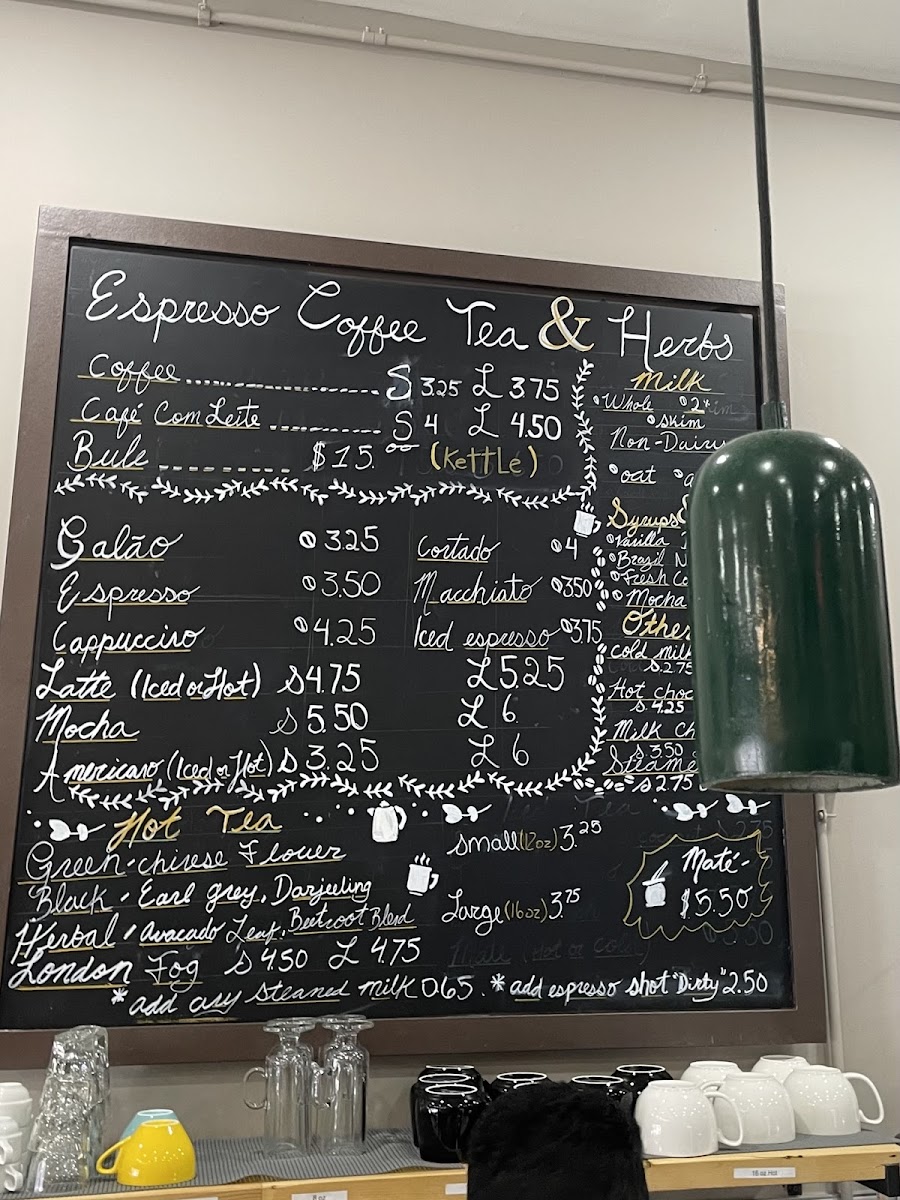 Espresso Coffee Tea & Herbs
Coffee S 3.25 L 3.75
Café Com Leite S 4 L 4.50
Bule $15. (Kettlé)
Galão 3.25 Cortado 4
Espresso 3.50 Macchiato 350
Cappuccino 4.25 Iced espresso 375
Latte (Iced or Hot) S 4.75 L 5.25
Mocha S 5.50 L 6
Americano (Iced or Hot) S 3.25 L 6
Milk
Whole 2%
skim
Non-Dairy
oat
Syrups
Vanilla
Brazil
Fresh
Mocha
cold milk
S. 2.75
Hot choc
S. 4.25
Milk
S 3.50
Steame
S 2.75
Hot Tea
Green-chinese Flower
Black - Earl grey, Darjeeling
Herbal / Avacado Leaf, Beetroot Blend
London Fog S 4.50 L 4.75
small (12oz) 3.25
Large (16oz) 3.75
Maté-
$5.50
*add any steamed milk 0.65. *add espresso shot "Dirty" 2.50
8 oz
16 oz Hot